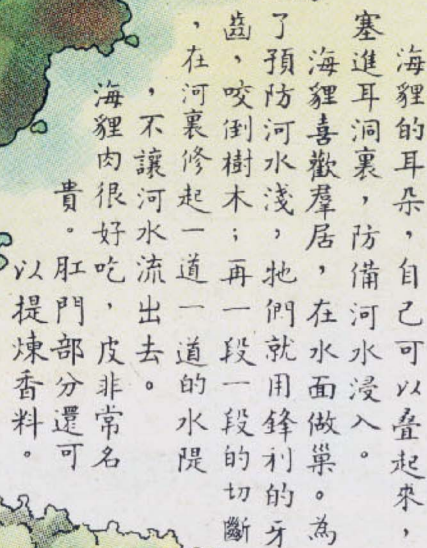 海貍的耳朵，自己可以叠起來，
塞進耳洞裏，防備河水浸入。
海貍喜歡羣居，在水面做巢。為
了預防河水淺，牠們就用鋒利的牙
齒，咬倒樹木；再一段一段的切斷
，在河裏修起一道一道的水隄
，不讓河水流出去。
海貍肉很好吃，皮非常名
貴。肛門部分還可
以提煉香料。